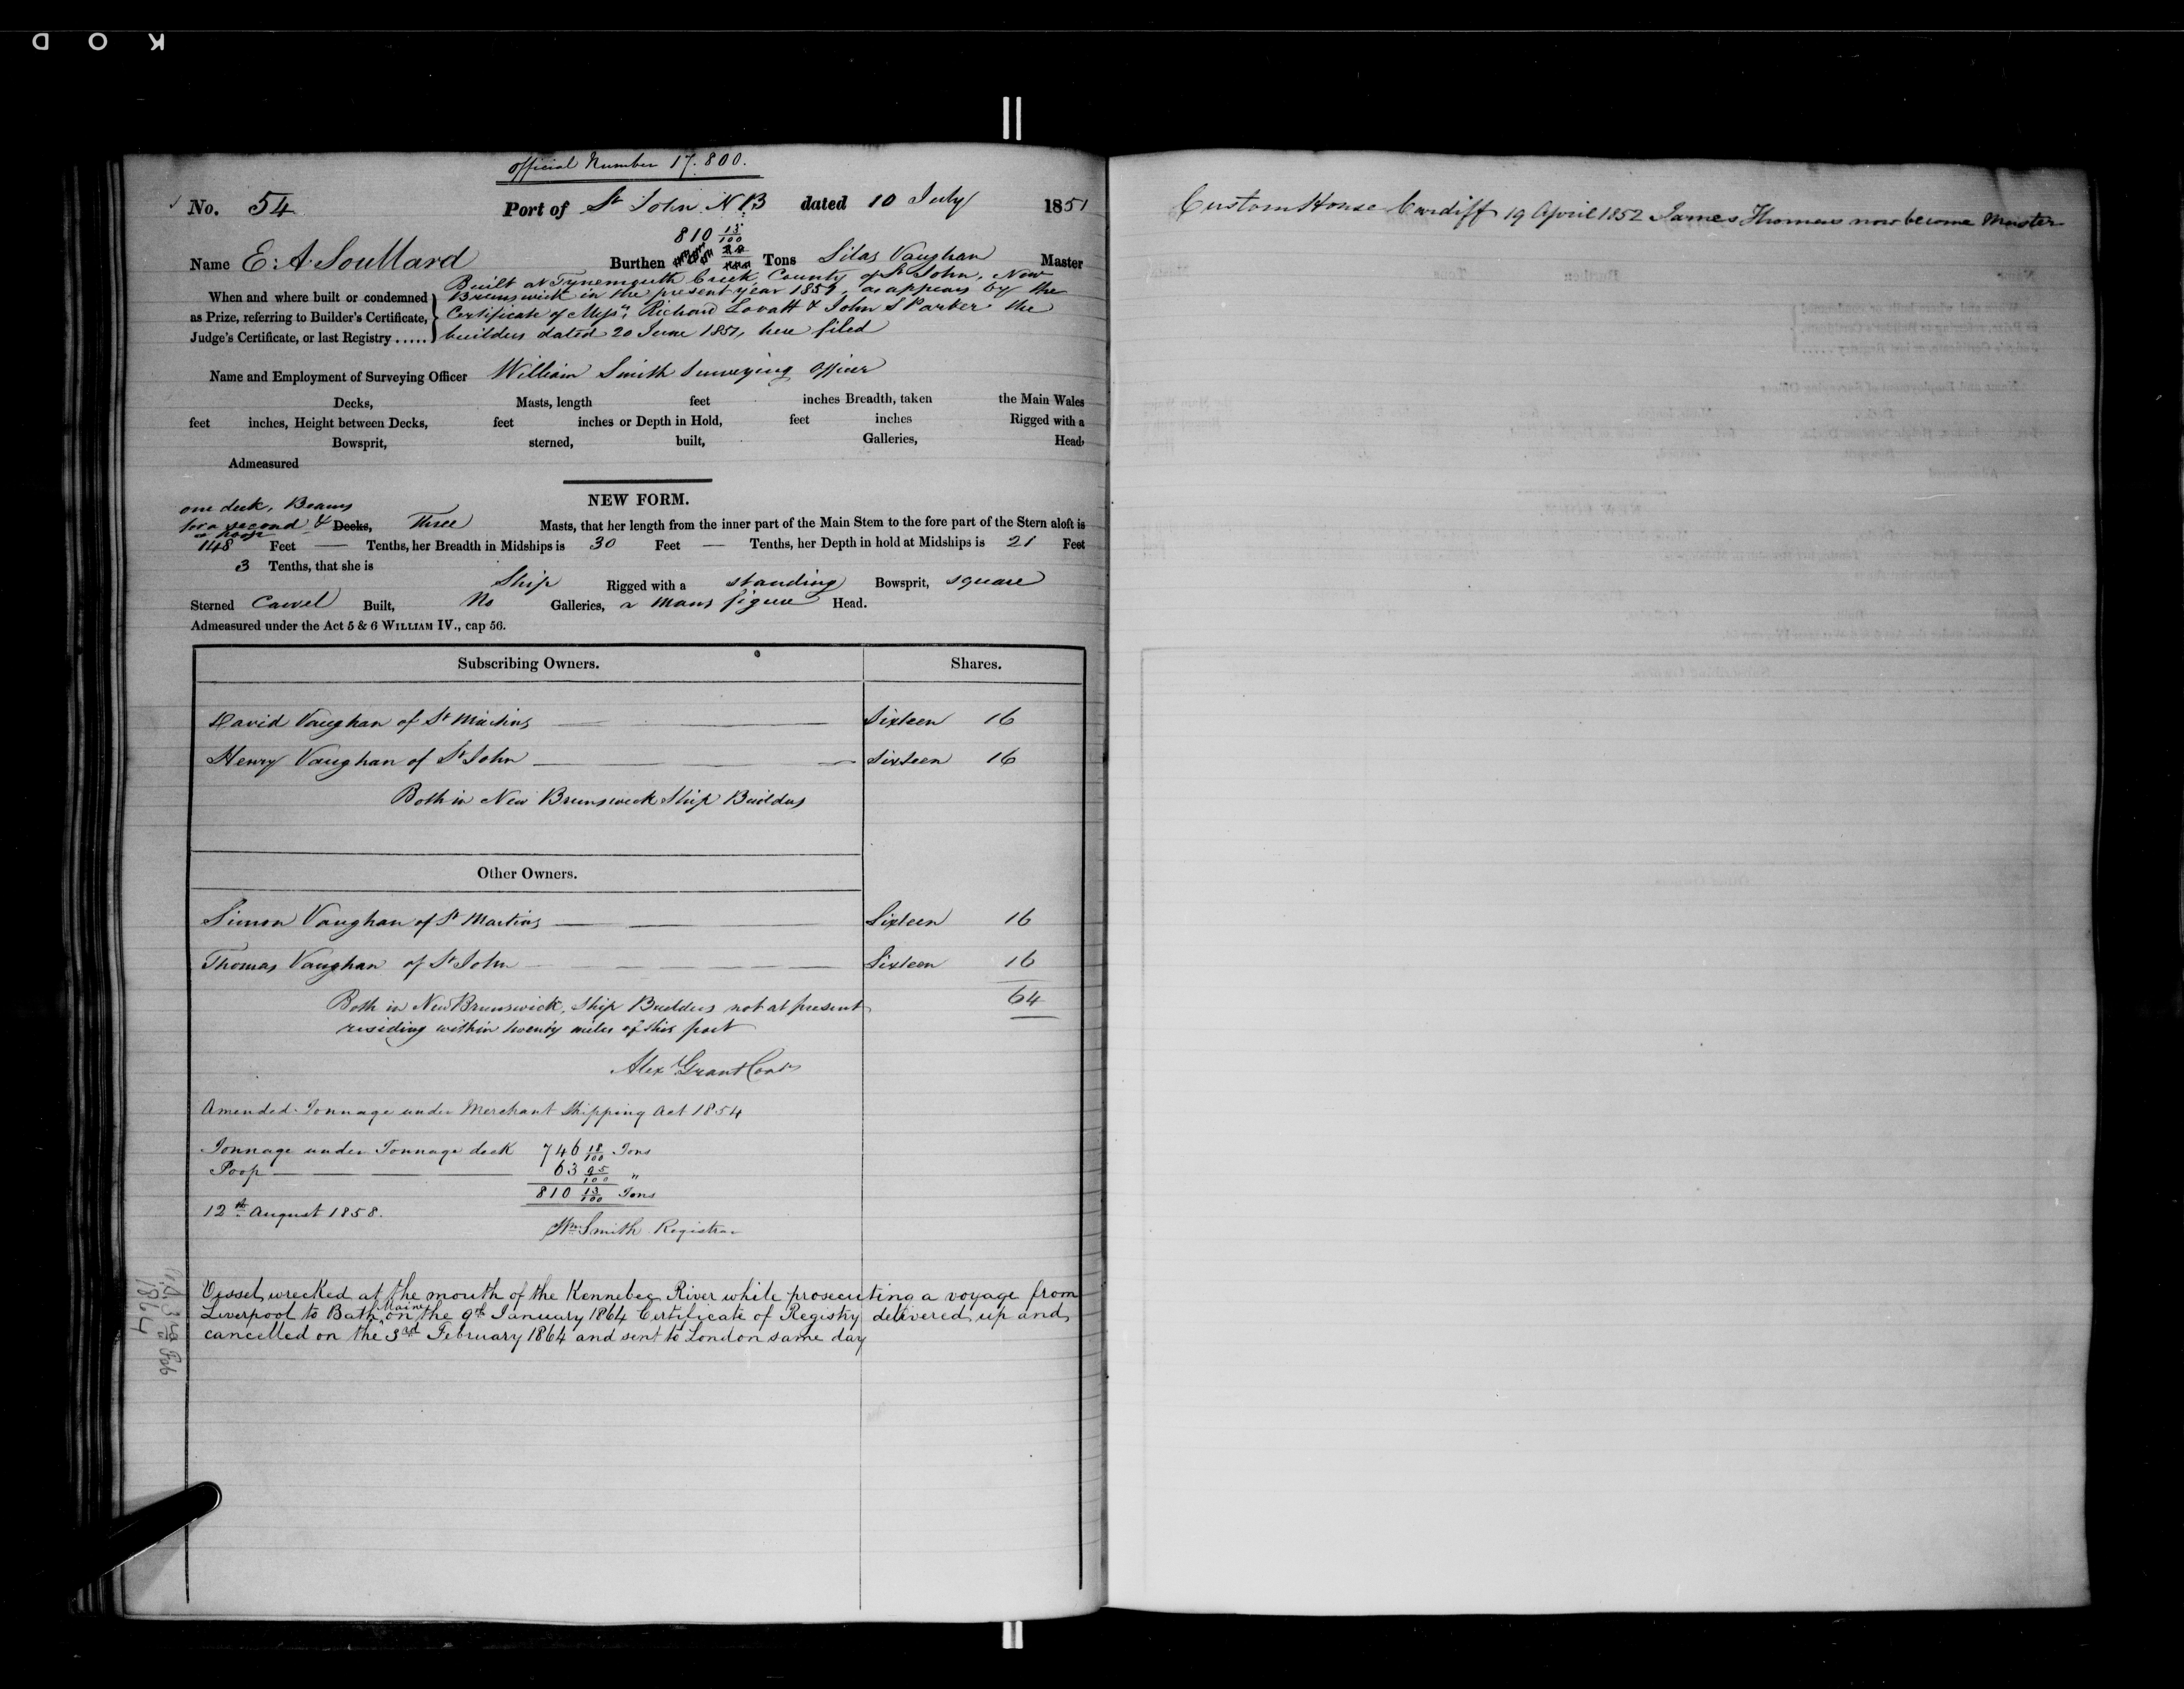 K O D
Official Number 17.800.
No. 54 Port of St John N.B dated 10 July 1851
810 13/100
Name E. A. Soullard Burthen Tons Silas Vaughan Master
When and where built or condemned as Prize, referring to Builder's Certificate, Judge's Certificate, or last Registry .....
Built at Tynemouth Creek, County of St John, New
Brunswick in the present year 1851, as appears by the
Certificate of Messrs Richard Lovatt & John S Parker the
builders dated 20 June 1851, here filed
Name and Employment of Surveying Officer William Smith Surveying Officer
Decks, Masts, length feet inches Breadth, taken the Main Wales
feet inches, Height between Decks, feet inches or Depth in Hold, feet inches Rigged with a
Bowsprit, sterned, built, Galleries, Head,
Admeasured
NEW FORM.
one deck, Beams
for a second & Decks, Three Masts, that her length from the inner part of the Main Stem to the fore part of the Stern aloft is
a Poop
148 Feet — Tenths, her Breadth in Midships is 30 Feet — Tenths, her Depth in hold at Midships is 21 Feet
3 Tenths, that she is
Ship Rigged with a standing Bowsprit, square
Sterned Carvel Built, No Galleries, a mans figure Head.
Admeasured under the Act 5 & 6 WILLIAM IV., cap 56.
Subscribing Owners. Shares.
David Vaughan of St Martins Sixteen 16
Henry Vaughan of St John Sixteen 16
Both in New Brunswick Ship Builders
Other Owners.
Simon Vaughan of St Martins Sixteen 16
Thomas Vaughan of St John Sixteen 16
Both in New Brunswick, Ship Builders not at present 64
residing within twenty miles of this port
Alex Grant
Amended Tonnage under Merchant Shipping Act 1854
Tonnage under Tonnage deck 746 18/100 Tons
Poop 63 95/100 "
810 13/100 Tons
12th August 1858.
Wm Smith Registrar
Vessel wrecked at the mouth of the Kennebec River while prosecuting a voyage from
Liverpool to Bath, Maine, on the 9th January 1864 Certificate of Registry delivered up and
cancelled on the 3rd February 1864 and sent to London same day
3rd Feb
1864
Custom House Cardiff 19 April 1852 James Thomas now become Master